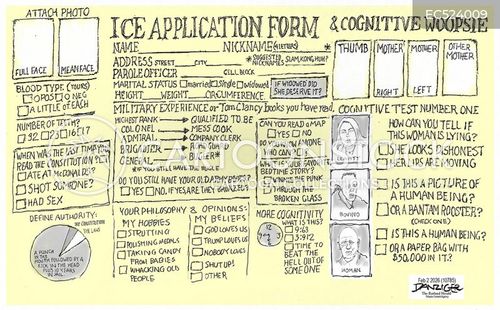 EC524009
ATTACH PHOTO
FULL FACE
MEAN FACE
ICE APPLICATION FORM & COGNITIVE WOOPSIE
NAME NICKNAME (4 LETTERS)
ADDRESS STREET CITY
*SUGGESTED NICKNAMES SLAM, KONG, HUH?
PAROLE OFFICER CELL BLOCK
MARITAL STATUS married single widowed
IF WIDOWED DID SHE DESERVE IT?
HEIGHT WEIGHT CIRCUMFERENCE
THUMB
MOTHER RIGHT
MOTHER LEFT
OTHER MOTHER
BLOOD TYPE (YOURS)
O POS O NEG
A LITTLE OF EACH
NUMBER OF TEETH?
32 23 16 17
WHEN WAS THE LAST TIME YOU
READ THE CONSTITUTION
ATE AT McDONALDS?
SHOT SOMEONE?
HAD SEX
MILITARY EXPERIENCE or Tom Clancy books you have read.
HIGHEST RANK QUALIFIED TO BE
COLONEL MESS COOK
ADMIRAL COMPANY CLERK
BRIGADIER
GENERAL
DO YOU STILL HAVE YOUR OLD ARMY BOOTS?
YES NO. IF YES ARE THEY BRONZED?
CAN YOU READ A MAP
YES NO
DO YOU KNOW ANYONE
WHO CAN
BEDTIME STORY?
THROUGH THE
BROKEN GLASS
COGNITIVE TEST NUMBER ONE
HOW CAN YOU TELL IF
THIS WOMAN IS LYING?
SHE LOOKS DISHONEST
HER LIPS ARE MOVING
BONGINO
IS THIS A PICTURE OF
A HUMAN BEING?
OR A BANTAM ROOSTER?
(CHECK ONE)
HOMAN
IS THIS A
HUMAN BEING?
OR A PAPER BAG WITH
$50,000 IN IT?
DEFINE AUTHORITY:
THE CONSTITUTION
THE LAWS
A PUNCH IN
THE MOUTH FOLLOWED BY A
KICK IN THE HEAD
PLUS 10 YEARS
IN JAIL
YOUR PHILOSOPHY & OPINIONS:
MY HOBBIES
STRUTTING
POLISHING MEDALS
TAKING CANDY
FROM BABIES
WHACKING OLD
PEOPLE
MY BELIEFS
GOD LOVES US
TRUMP LOVES US
NOBODY LOVES
SHUT UP!
OTHER
MORE COGNITIVITY
WHAT IS THIS?
9:63
3:92
TIME TO
BEAT THE
HELL OUT OF
SOMEONE
Feb 2 2026 (10785)
DANZIGER
The Rutland Herald